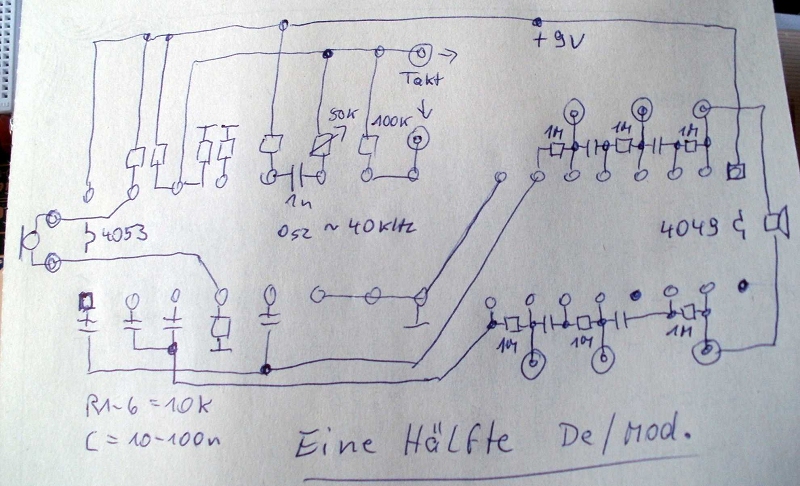 +9V
Takt
50K
100K
1M
1M
1M
1n
4053
Osz ~ 40kHz
4049
1M
1M
1M
R1-6 = 10K
C = 10-100n
Eine Hälfte De/Mod.